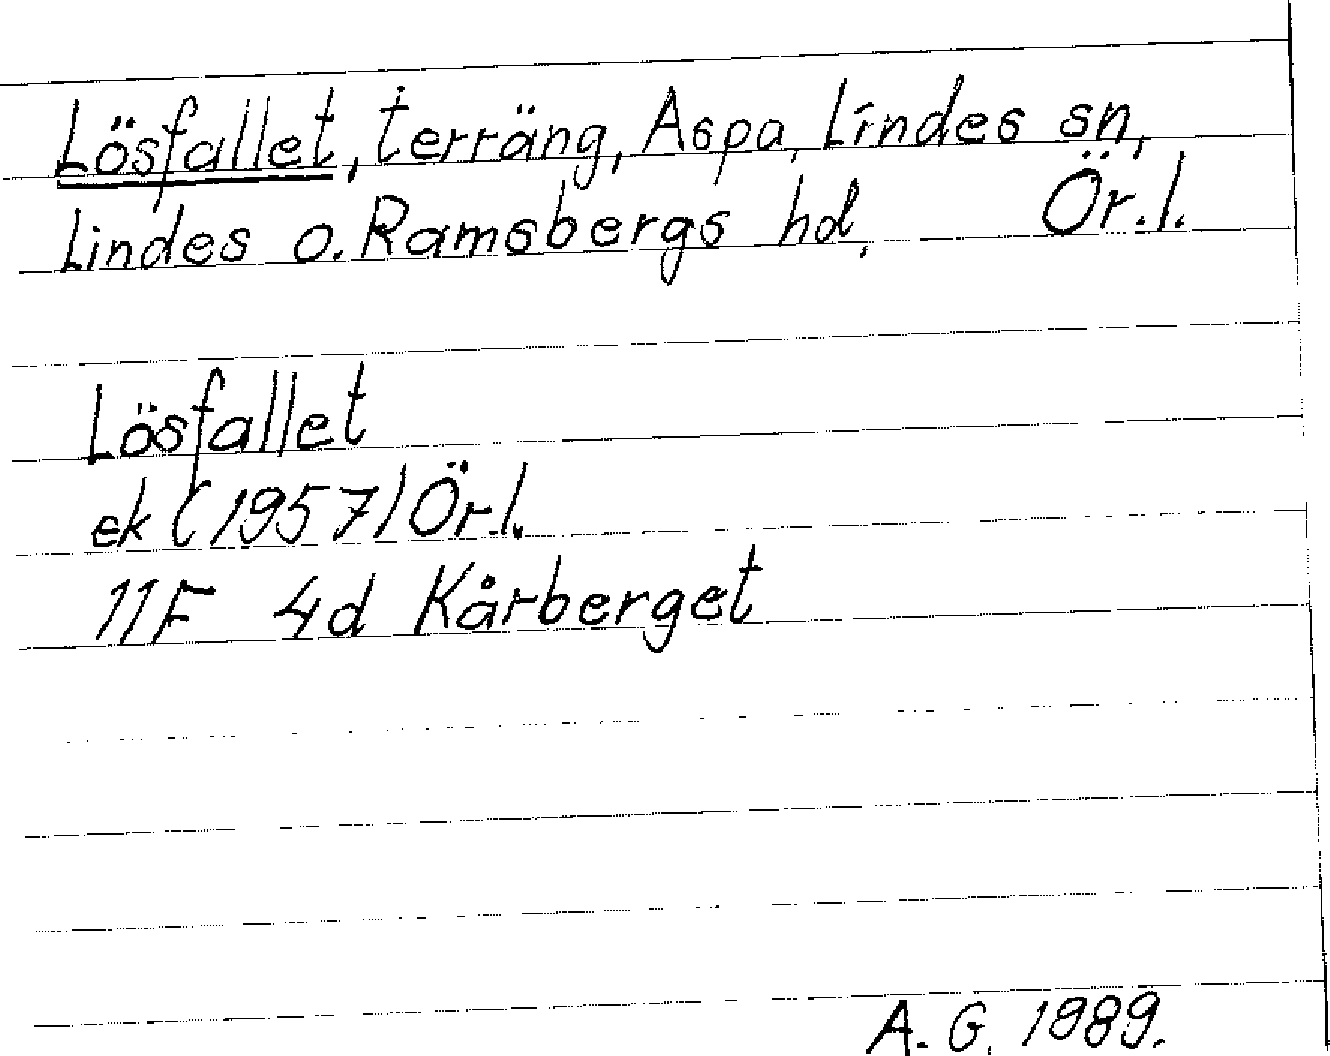 Lösfallet, terräng, Aspa, Lindes sn,
Lindes o. Ramsbergs hd, Ör.l.
Lösfallet
ek (1957) Ör.l.
11F 4d Kårberget
A. G. 1989.